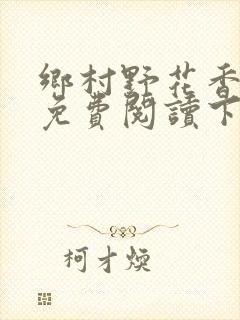 鄉村野花香
免費閱讀下
柯才煥